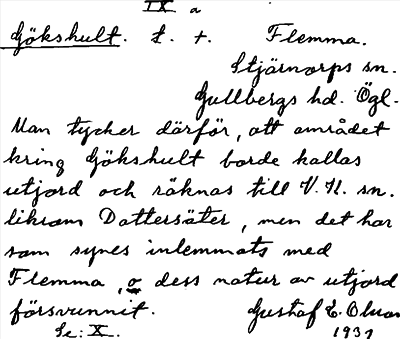 IX a
Gökshult. t. +. Flemma.
Stjärnorps sn.
Gullbergs hd. Ögl.
Man tycker därför, att området
kring Gökshult borde kallas
utjord och räknas till V. H. sn.
liksom Dottersäter, men det har
som synes inlemmats med
Flemma, o dess natur av utjord
försvunnit. Gustaf E. Olson
Se: X. 1931